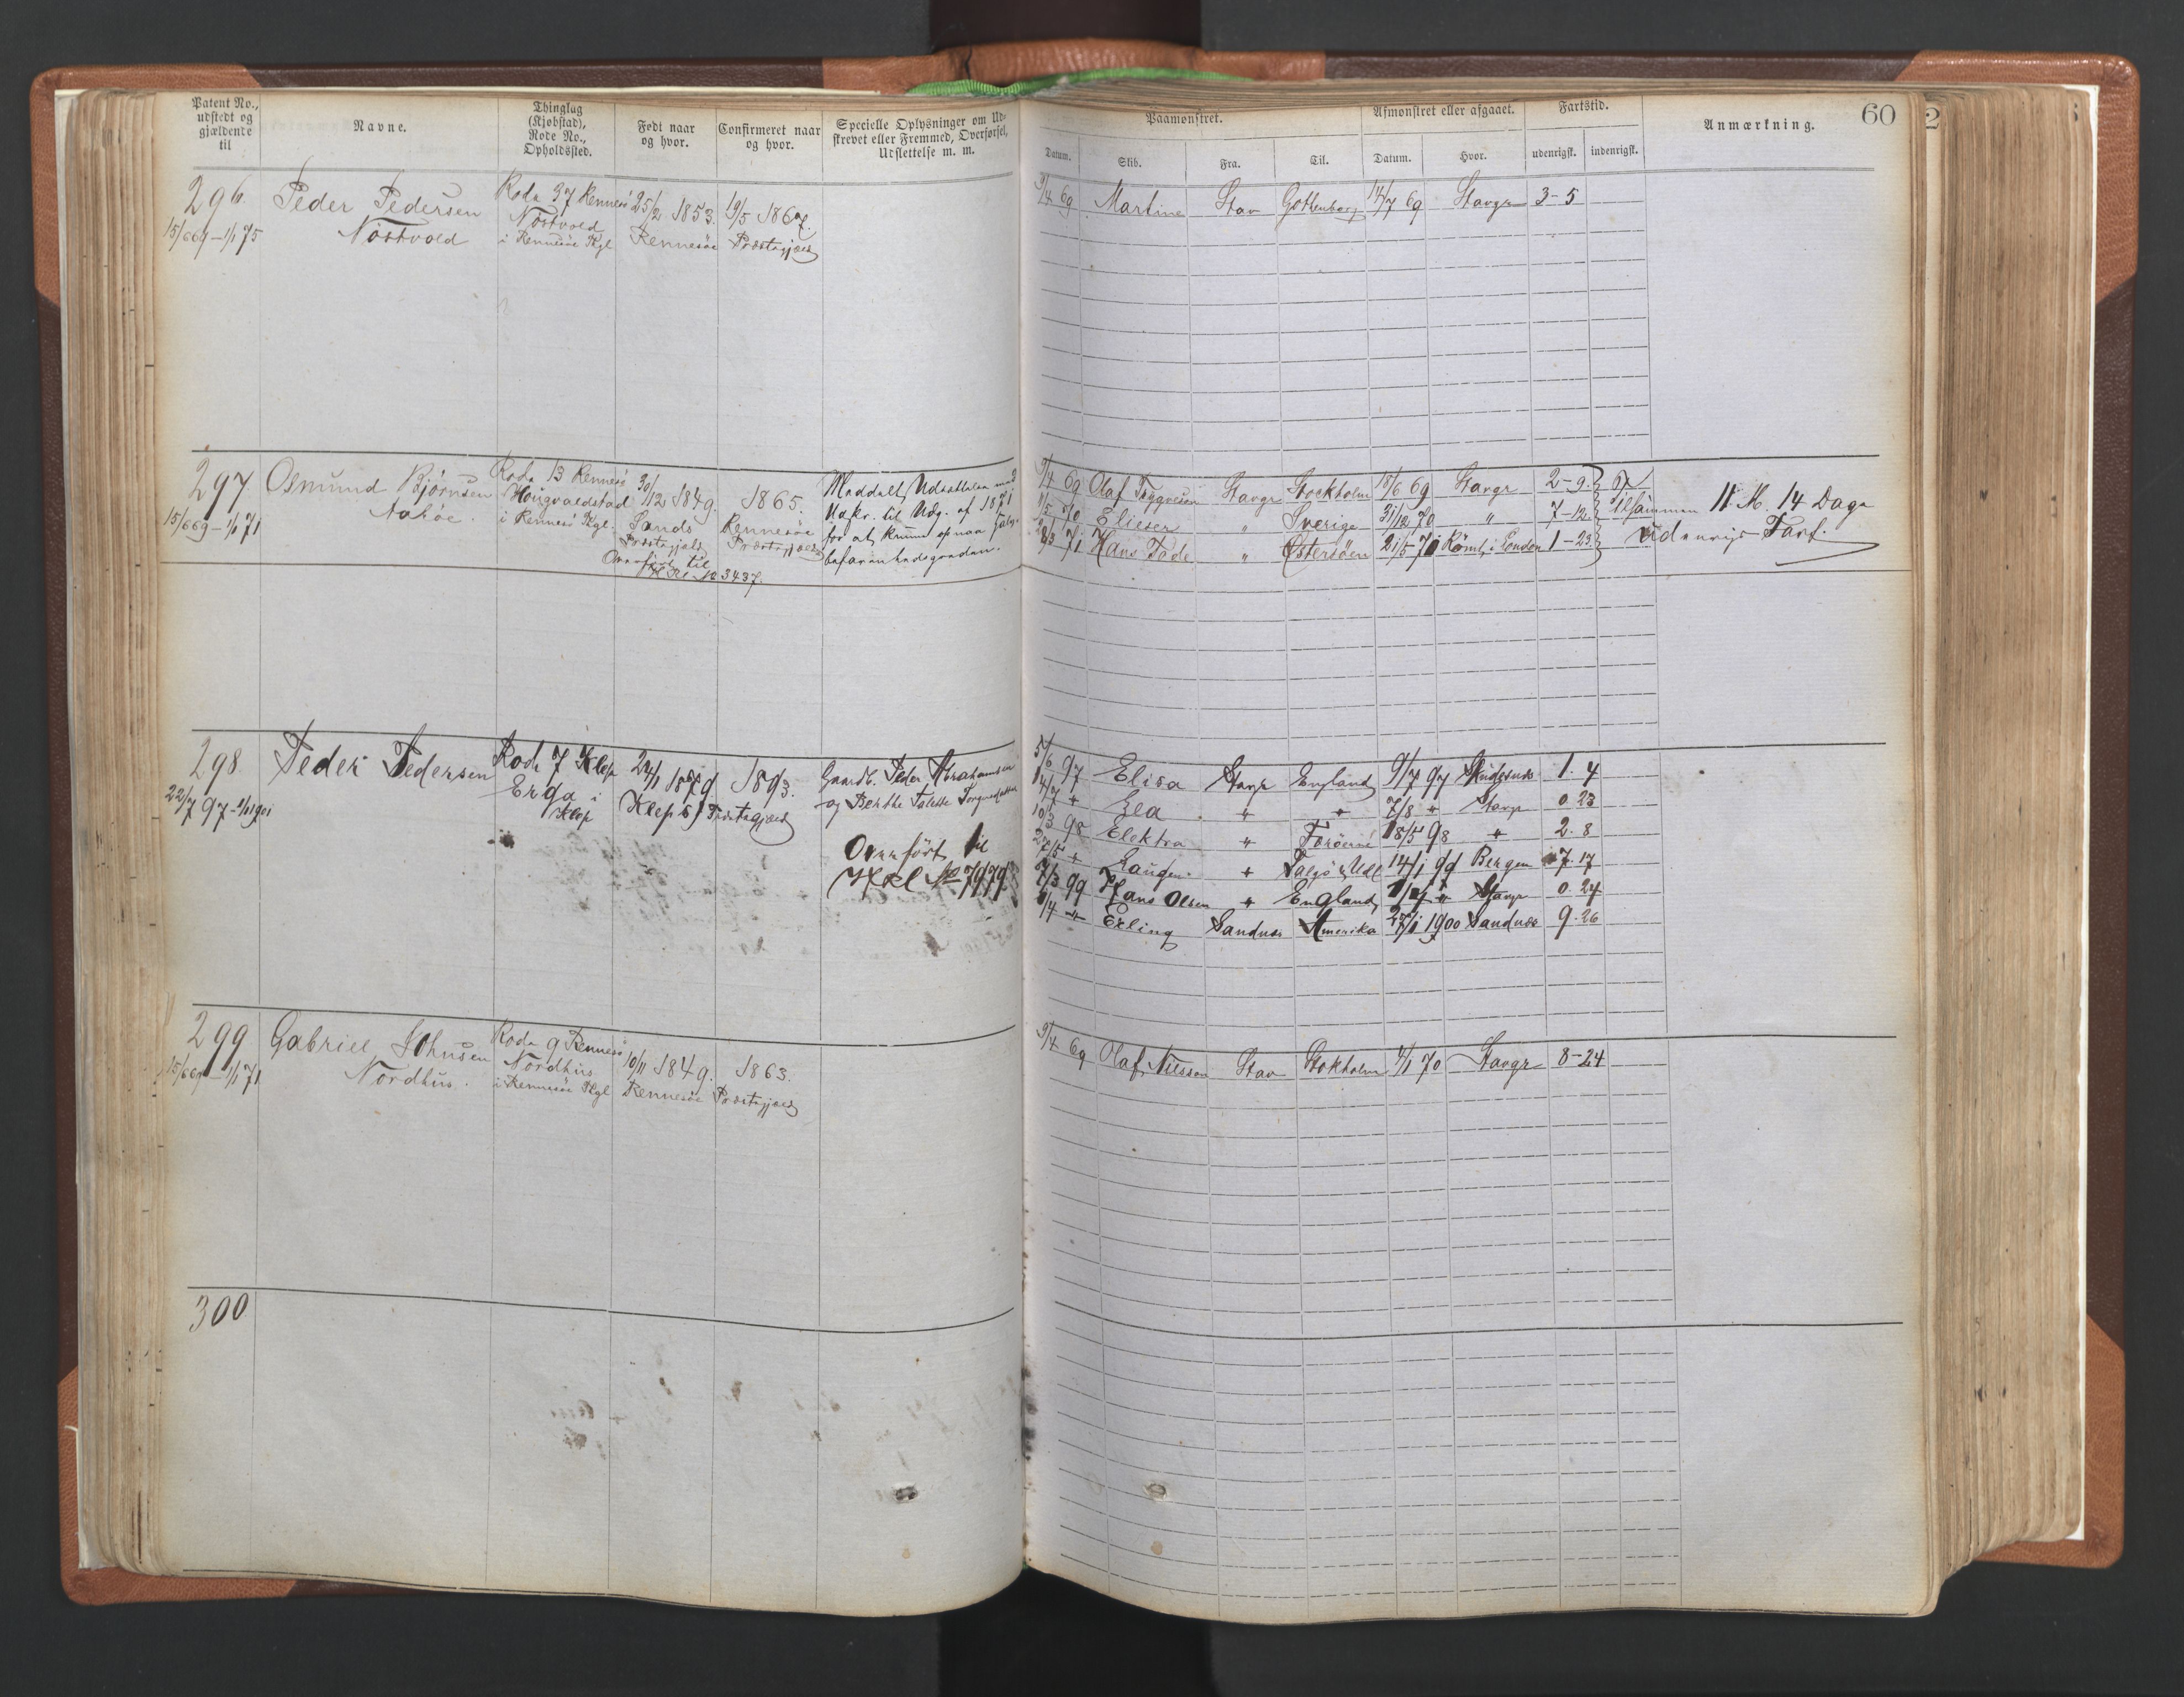 Patent No.,
udstedt og
gjældende
til
Navne.
Thinglag
(Kjøbstad),
Rode No.,
Opholdssted.
Født naar
og hvor.
Confirmeret naar
og hvor.
Specielle Oplysninger om Ud-
skrevet eller Fremmed, Overførsel,
Udslettelse m. m.
296
15/6 69 - 1/1 75
Peder Pedersen
Nöstvold
Rode 37 Rennesö
Nöstvold
i Rennesöe Kgl
25/2 1853.
Rennesöe
19/5 1867.
Præstegjæld
297
15/6 69 - 1/1 71
Osmund Björnsen
Rode 13 Rennesö
Hougvaldstad
i Rennesö Kgl.
30/12 1849.
Sands
Præstegjæld
1865.
Rennesöe
Præstegjæld
Meddelt Udsættelse med
Udskr. til Udg. af 1871
for at kunne opnaa
befarenhedsgraden.
Overfört til
No 3437.
298
22/7 97 - 1/1 1901
Peder Pedersen
Rode 7 Klep
Erga i
Klep
24/1 1879
Klep
1893.
Præstegjæld
Gaardb. Peder Abrahamsen
og Berthe
Overfört til
HRl No 7979
299
15/6 69 - 1/1 71
Gabriel Johnsen
Nordhus.
Rode 9 Rennesö
Nordhus
i Rennesöe Kgl
10/11 1849.
Rennesöe
1863.
Præstegjæld
300
60
Paamønstret.
Afmønstret eller afgaaet.
Fartstid.
Anmærkning.
Datum.
Skib.
Fra.
Til.
Datum.
Hvor.
udenrigsk.
indenrigsk.
9/4 69 Martine Stav Gottenborg 14/7 69 Stavgr 3-5
9/4 69 Olaf Trygvesen Stavgr Stockholm 18/6 69 Stavgr 2-9.
70 Elieser " Sverige 31/12 70 " 7-12. Tilsammen 11 M. 14 Dage
71 Hans Tode " Östersöen 21/5 71 Römt i London 1-23 udenrigs Fart.
5/6 97 Elisa Stavgr England 9/7 97 1. 4
14/7 " Lea " " 7/8 " Stavgr 0. 23
10/3 98 Elektra " Færöerne 18/5 98 " 2. 8
Laugen " 14/1 99 Bergen 7. 17
7/3 99 Hans Olsen " England Stavgr 0. 24
Erling Sandnæs Amerika 27/1 1900 Sandnæs 9. 26
9/4 69 Olaf Nilsson Stav Stokholm 4/1 70 Stavgr 8-24